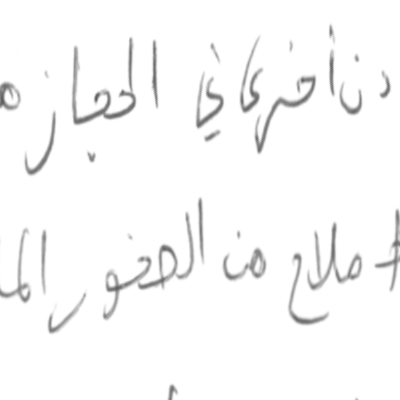 دن أخرى في الحجاز
أملاح من الصخور